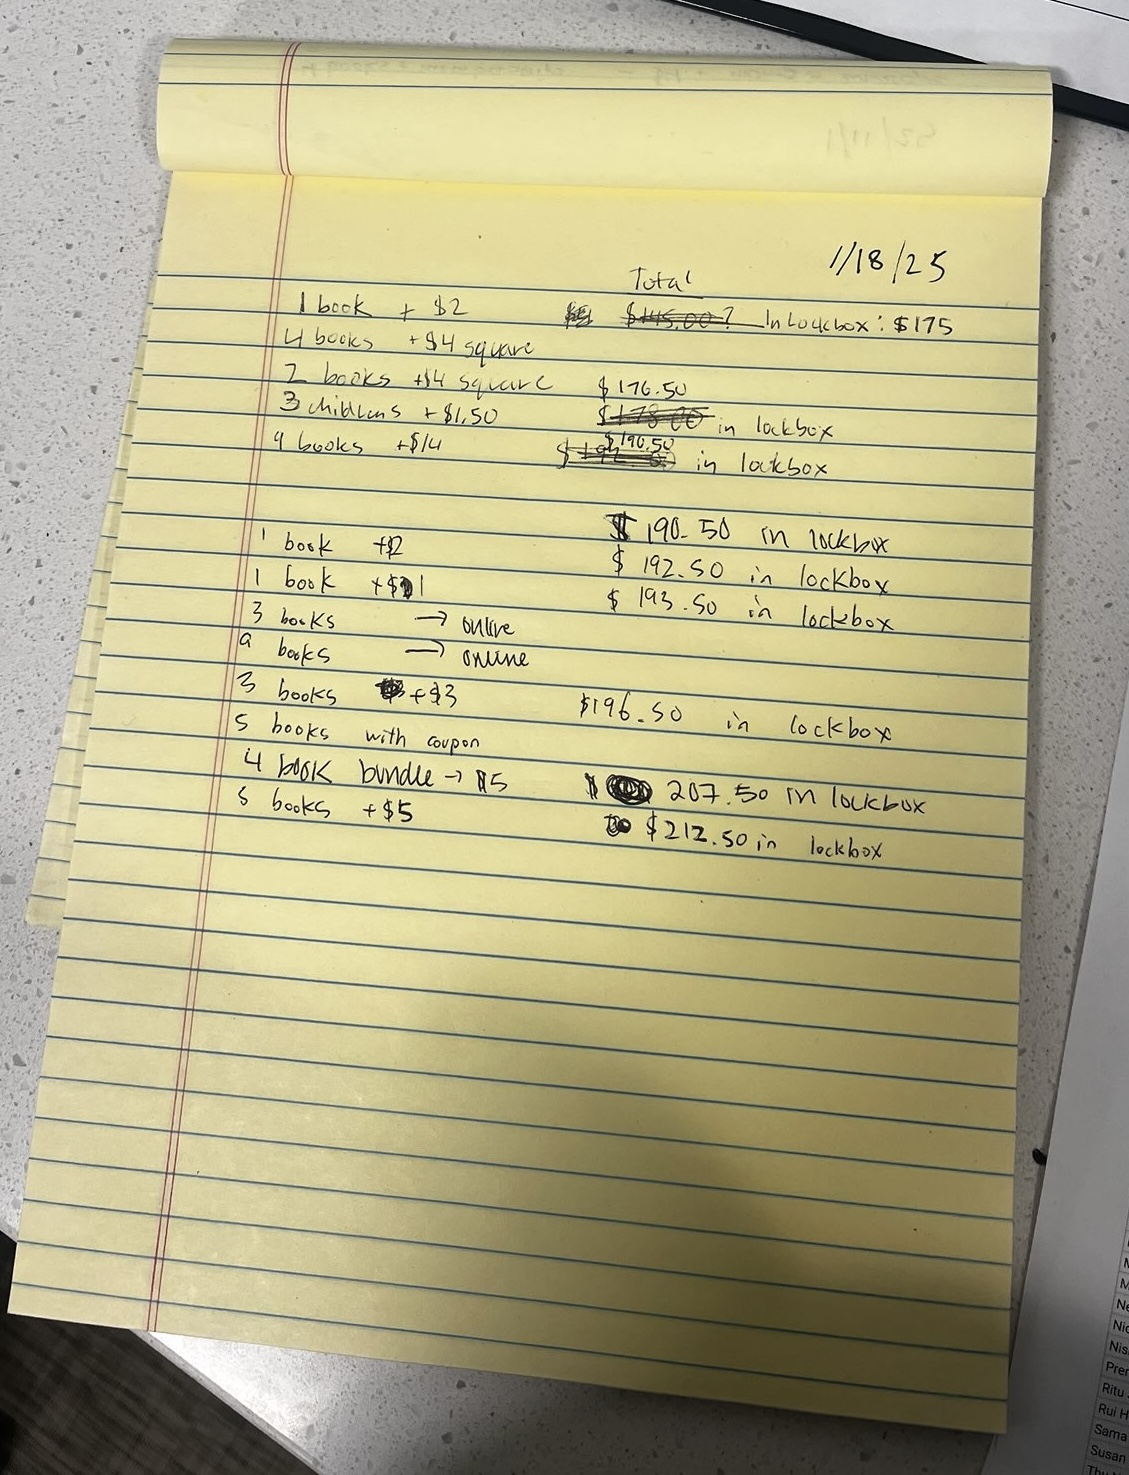 1/18/25
Total
1 book + $2 $145.00? In Lockbox: $175
4 books +$4 square
2 books +$4 square $176.50
3 childrens +$1.50 $178.00 in lockbox
9 books +$14 $190.50 in lockbox
$190.50 in lockbox
1 book +$2 $192.50 in lockbox
1 book +$1 $193.50 in lockbox
3 books → online
9 books → online
3 books +$3 $196.50 in lockbox
5 books with coupon
4 book bundle → $5 $207.50 in lockbox
5 books +$5 $212.50 in lockbox
Nis
Ritu
Rui H
Sama
Susan